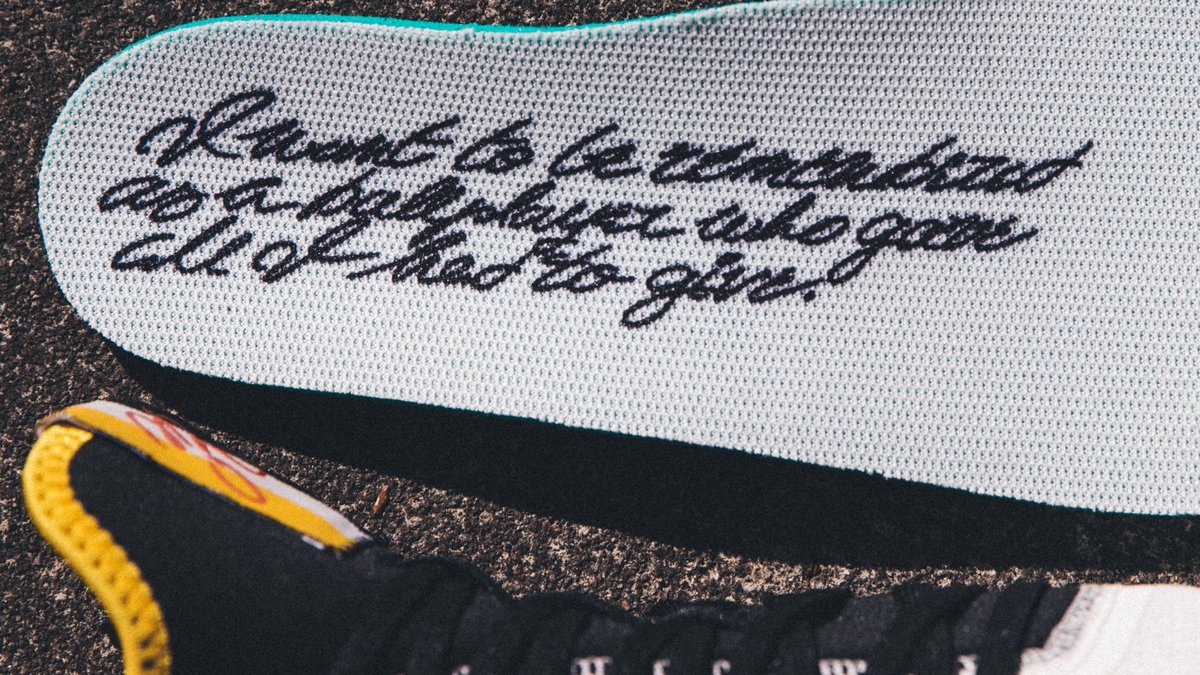 I want to be remembered
as a ballplayer who gave
all of hed to give.